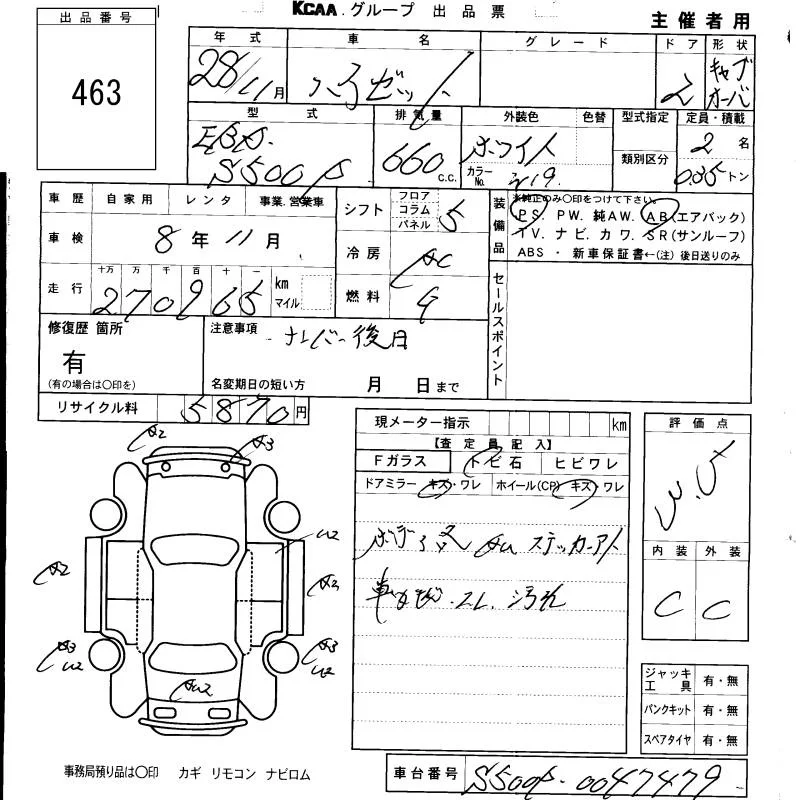 KCAA グループ 出品票
主催者用
出品番号
463
年式 車名 グレード ドア 形状
28/11月 ハイゼット 2 キャブオーバ
型式 排気量 外装色 色替 型式指定 定員・積載
EBD-
S500P 660c.c. ホワイト カラーNo. W19 類別区分 2名
0.35トン
車歴 自家用 レンタ 事業.営業車
シフト フロア コラム パネル 5
装備品 ※純正のみ〇印をつけて下さい。
PS. PW. 純AW. AB(エアバック)
TV. ナビ. カワ. SR(サンルーフ)
ABS ・ 新車保証書←(注) 後日送りのみ
車検 8年11月
冷房 AC
走行 十万 万 千 百 十 一
270965 km マイル
燃料 G
セールスポイント
修復歴 箇所
有
(有の場合は〇印を)
注意事項
ナンバー後日
名変期日の短い方 月 日まで
リサイクル料 5870円
現メーター指示 km
【査定員記入】
Fガラス トビ石 ヒビワレ
ドアミラー キズ・ワレ ホイール(CP) キズ・ワレ
ステッカーアト
車内 スレ 汚れ
評価点
3.5
内装 外装
C C
A2
A3
U2
A2
A3
A3
U2
A3
U2
AU2
ジャッキ工具 有・無
パンクキット 有・無
スペアタイヤ 有・無
事務局預り品は〇印 カギ リモコン ナビロム
車台番号 S500P-0047479